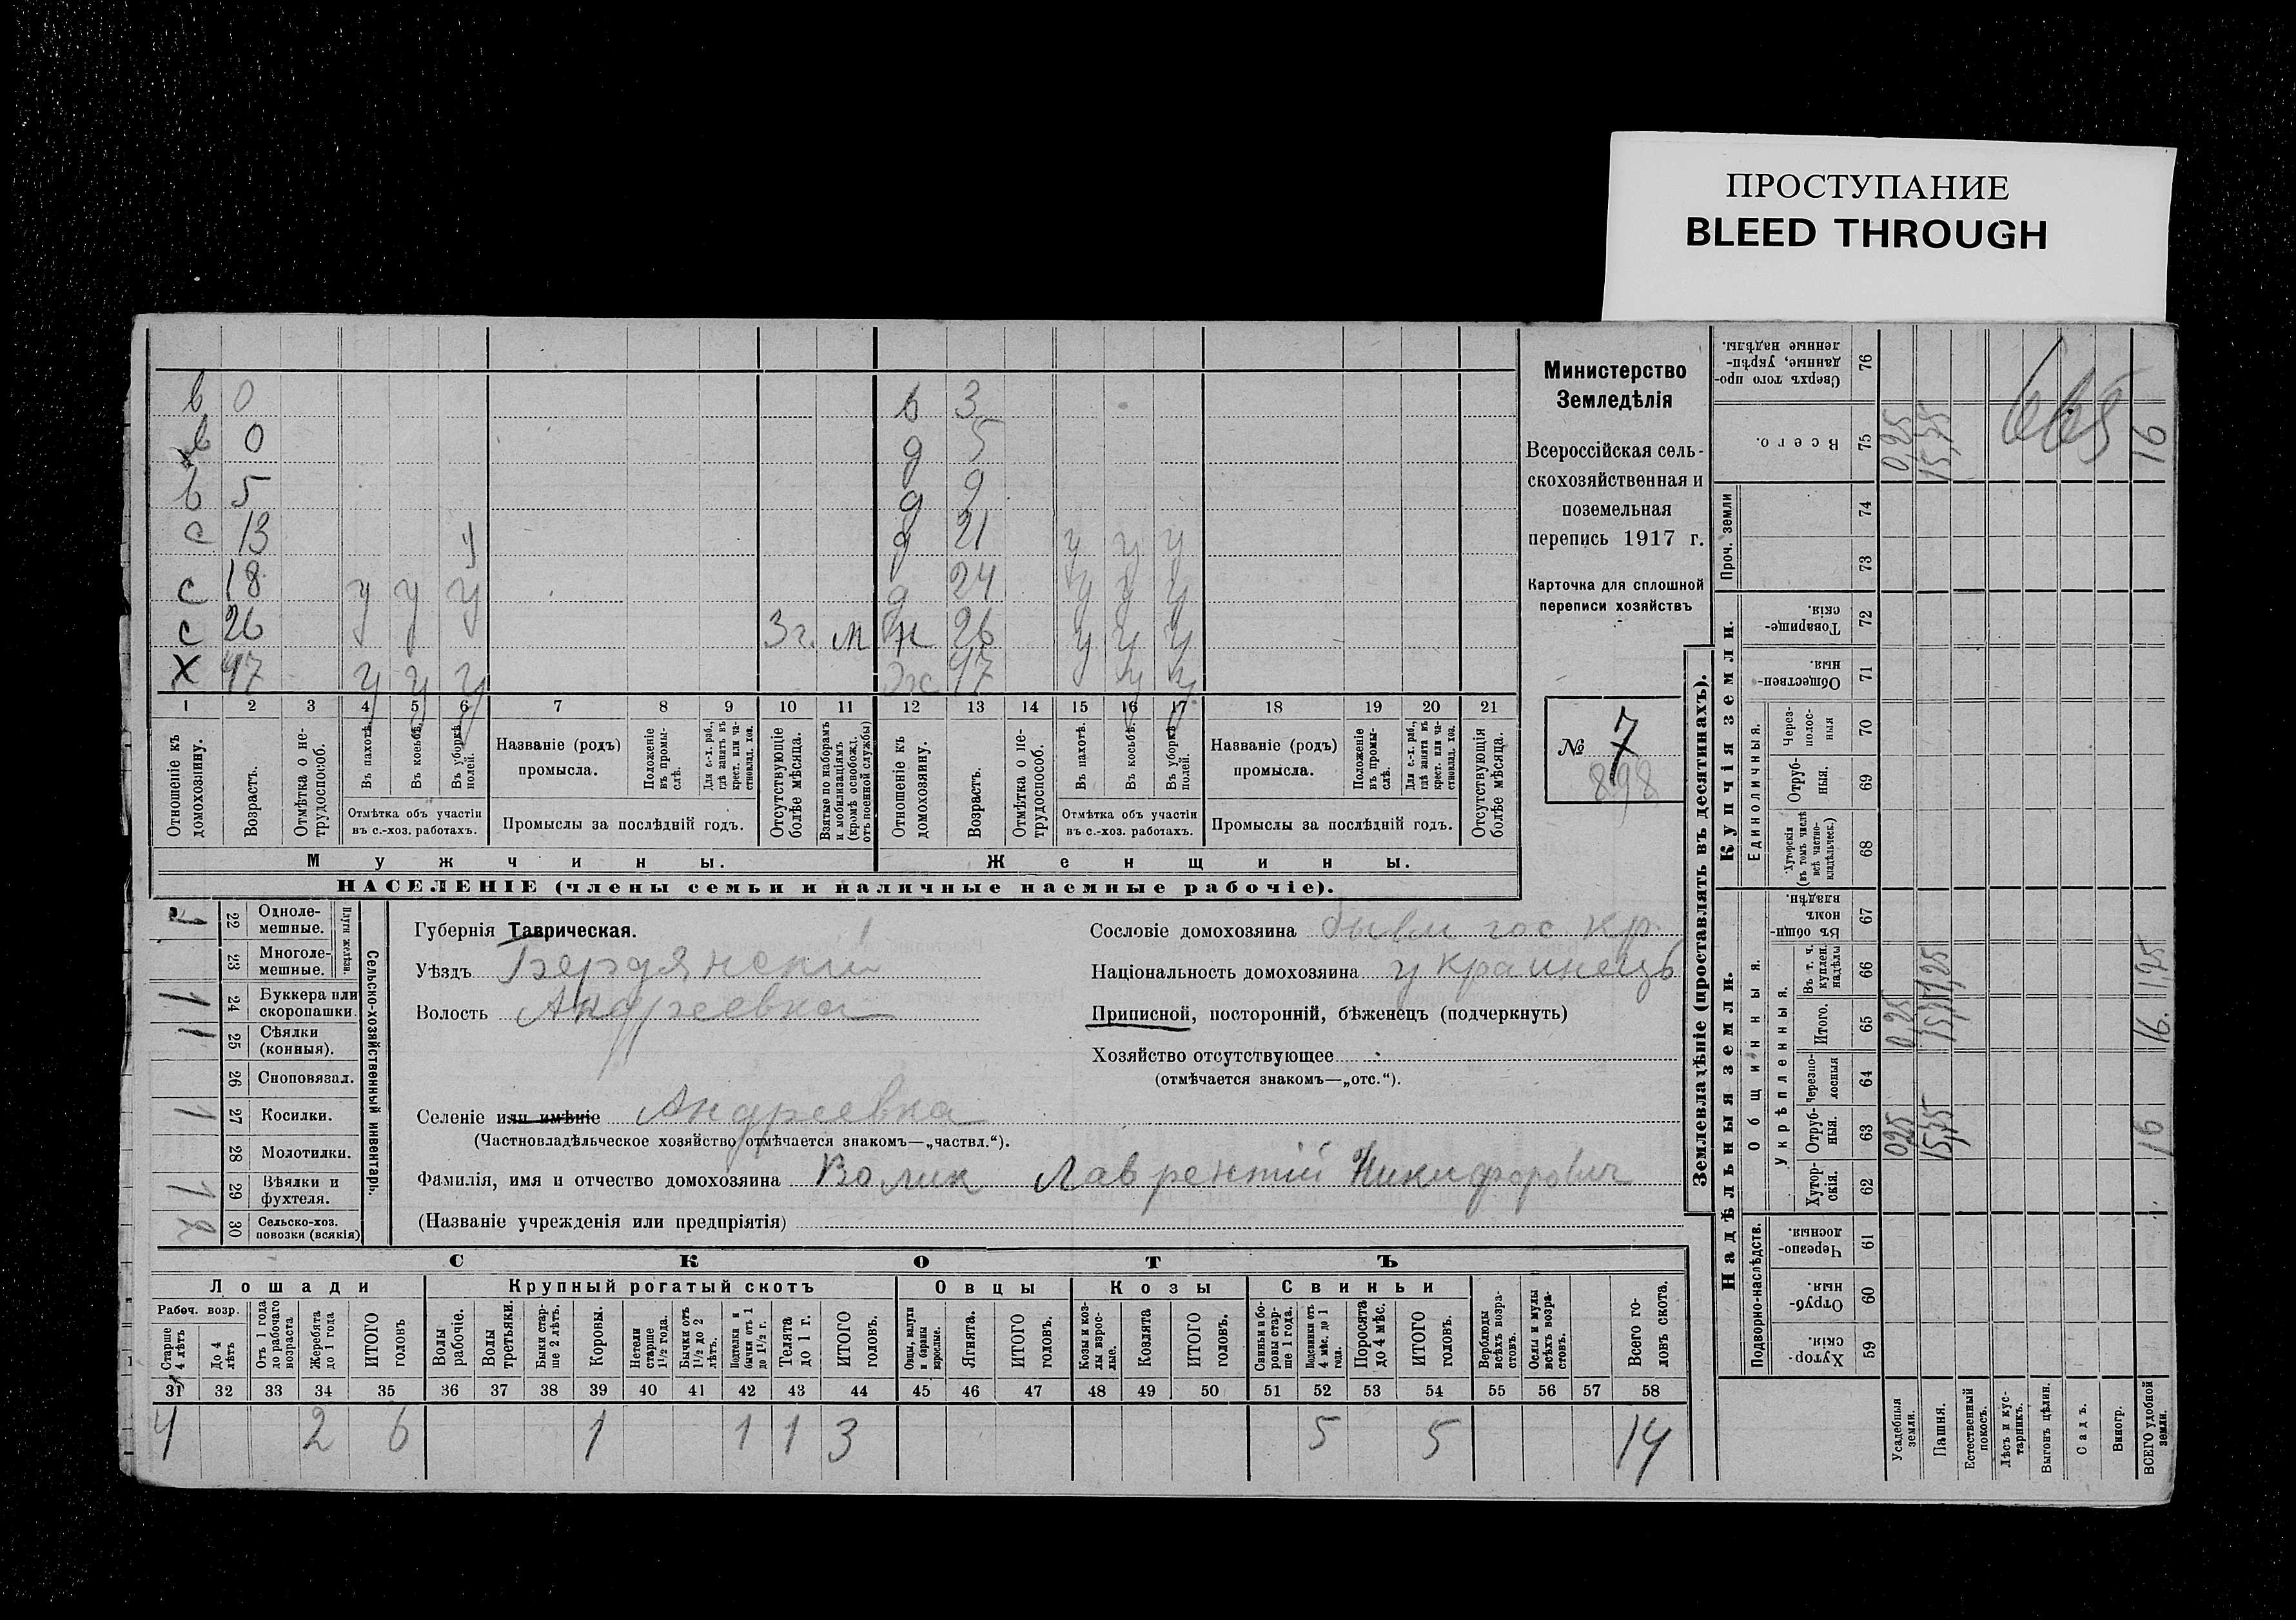 ПРОСТУПАНИЕ
BLEED THROUGH
в 0 в 3
в 0 д 5
в 5 д 9
с 13 у д 21 у у у
с 18 у у у д 24 у у у
с 26 3 г. м н 26 у у у
х 47 у у у ж 47 у у
1 2 3 4 5 6 7 8 9 10 11 12 13 14 15 16 17 18 19 20 21
Отношеніе къ домохозяину.
Возрастъ.
Отмѣтка о не-трудоспособ.
Въ пахотѣ.
Въ косьбѣ.
Въ уборкѣ полей.
Отмѣтка объ участіи въ с.-хоз. работахъ.
Названіе (родъ) промысла.
Положеніе въ промы-слѣ.
Для с.-х. раб., гдѣ занятъ въ крест. или ча-стновлад. хоз.
Промыслы за послѣдній годъ.
Отсутствующіе болѣе мѣсяца.
Взятые по наборамъ и мобилизаціямъ (кромѣ освобожд. отъ военной службы)
Отношеніе къ домохозяину.
Возрастъ.
Отмѣтка о не-трудоспособ.
Въ пахотѣ.
Въ косьбѣ.
Въ уборкѣ полей.
Отмѣтка объ участіи въ с.-хоз. работахъ.
Названіе (родъ) промысла.
Положеніе въ промы-слѣ.
Для с.-х. раб., гдѣ занята въ крест. или ча-стновлад. хоз.
Промыслы за послѣдній годъ.
Отсутствующія болѣе мѣсяца.
Мужчины.
Женщины.
НАСЕЛЕНІЕ (члены семьи и наличные наемные рабочіе).
Министерство
Земледѣлія
Всероссійская сель-
скохозяйственная и
поземельная
перепись 1917 г.
Карточка для сплошной
переписи хозяйствъ
№ 7
898
1 22 Одноле-мешные.
23 Многоле-мешные.
Плуги желѣзн.
1 24 Буккера или скоропашки.
1 25 Сѣялки (конныя).
26 Сноповязал.
1 27 Косилки.
28 Молотилки.
1 29 Вѣялки и фухтеля.
2 30 Сельско-хоз. повозки (всякія)
Сельско-хозяйственный инвентарь.
Губернія Таврическая.
Уѣздъ Бердянскій
Волость Андреевка
Селеніе или имѣніе Андреевка
(Частновладѣльческое хозяйство отмѣчается знакомъ—„частвл.“).
Фамилія, имя и отчество домохозяина Волик Лаврентій Никифорович
(Названіе учрежденія или предпріятія)
Сословіе домохозяина бывш гос кр.
Національность домохозяина украинецъ
Приписной, посторонній, бѣженецъ (подчеркнуть)
Хозяйство отсутствующее
(отмѣчается знакомъ—„отс.“).
СКОТЪ
Лошади
Крупный рогатый скотъ
Овцы
Козы
Свиньи
Рабоч. возр.
Старше 4 лѣтъ
До 4 лѣтъ
Отъ 1 года до рабочаго возраста
Жеребята до 1 года
ИТОГО головъ
Волы рабочіе.
Волы третьяки.
Быки стар-ше 2 лѣтъ.
Коровы.
Нетели старше 1½ года.
Бычки отъ 1½ до 2 лѣтъ.
Подтелки и бычки отъ 1 до 1½ г.
Телята до 1 г.
ИТОГО головъ.
Овцы, валухи и бараны взрослые.
Ягнята.
ИТОГО головъ.
Козы и коз-лы взрос-лые.
Козлята
ИТОГО головъ.
Свиньи и бо-ровы стар-ше 1 года.
Подсвинки отъ 4 мѣс. до 1 года.
Поросята до 4 мѣс.
ИТОГО головъ.
Верблюды всѣхъ возра-стовъ.
Ослы и мулы всѣхъ возра-стовъ.
Всего го-ловъ скота.
31 32 33 34 35 36 37 38 39 40 41 42 43 44 45 46 47 48 49 50 51 52 53 54 55 56 57 58
4 2 6 1 1 1 3 5 5 14
Землевладѣніе (проставлять въ десятинахъ).
Надѣльныя земли.
Купчія земли.
Проч. земли
Подворно-наслѣдств.
Общинныя.
Укрѣпленныя.
Единоличныя.
Сверхъ того про-данные, укрѣп-ленные надѣлы. 76
Всего. 75 0,25 15,75 16
665
74
73
Товарище-скія. 72
Обществен-ныя. 71
Через-полос-ныя 70
Отруб-ныя. 69
Хуторскія (въ томъ числѣ всѣ частно-владѣльческ.) 68
Въ общи-номъ владѣн. 67
Въ т. ч. куплен. надѣлы 66 1,25 1,25
Итого. 65 0,25 15,75 16.
Черезпо-лосныя 64
Отруб-ныя. 63 0,25 15,75 16
Хутор-скія. 62
Черезпо-лосныя. 61
Отруб-ныя. 60
Хутор-скія. 59
Усадебныя земли.
Пашня.
Естественный покосъ.
Лѣсъ и кус-тарникъ.
Выгонъ цѣлин.
Садъ.
Виногр.
ВСЕГО удобной земли.